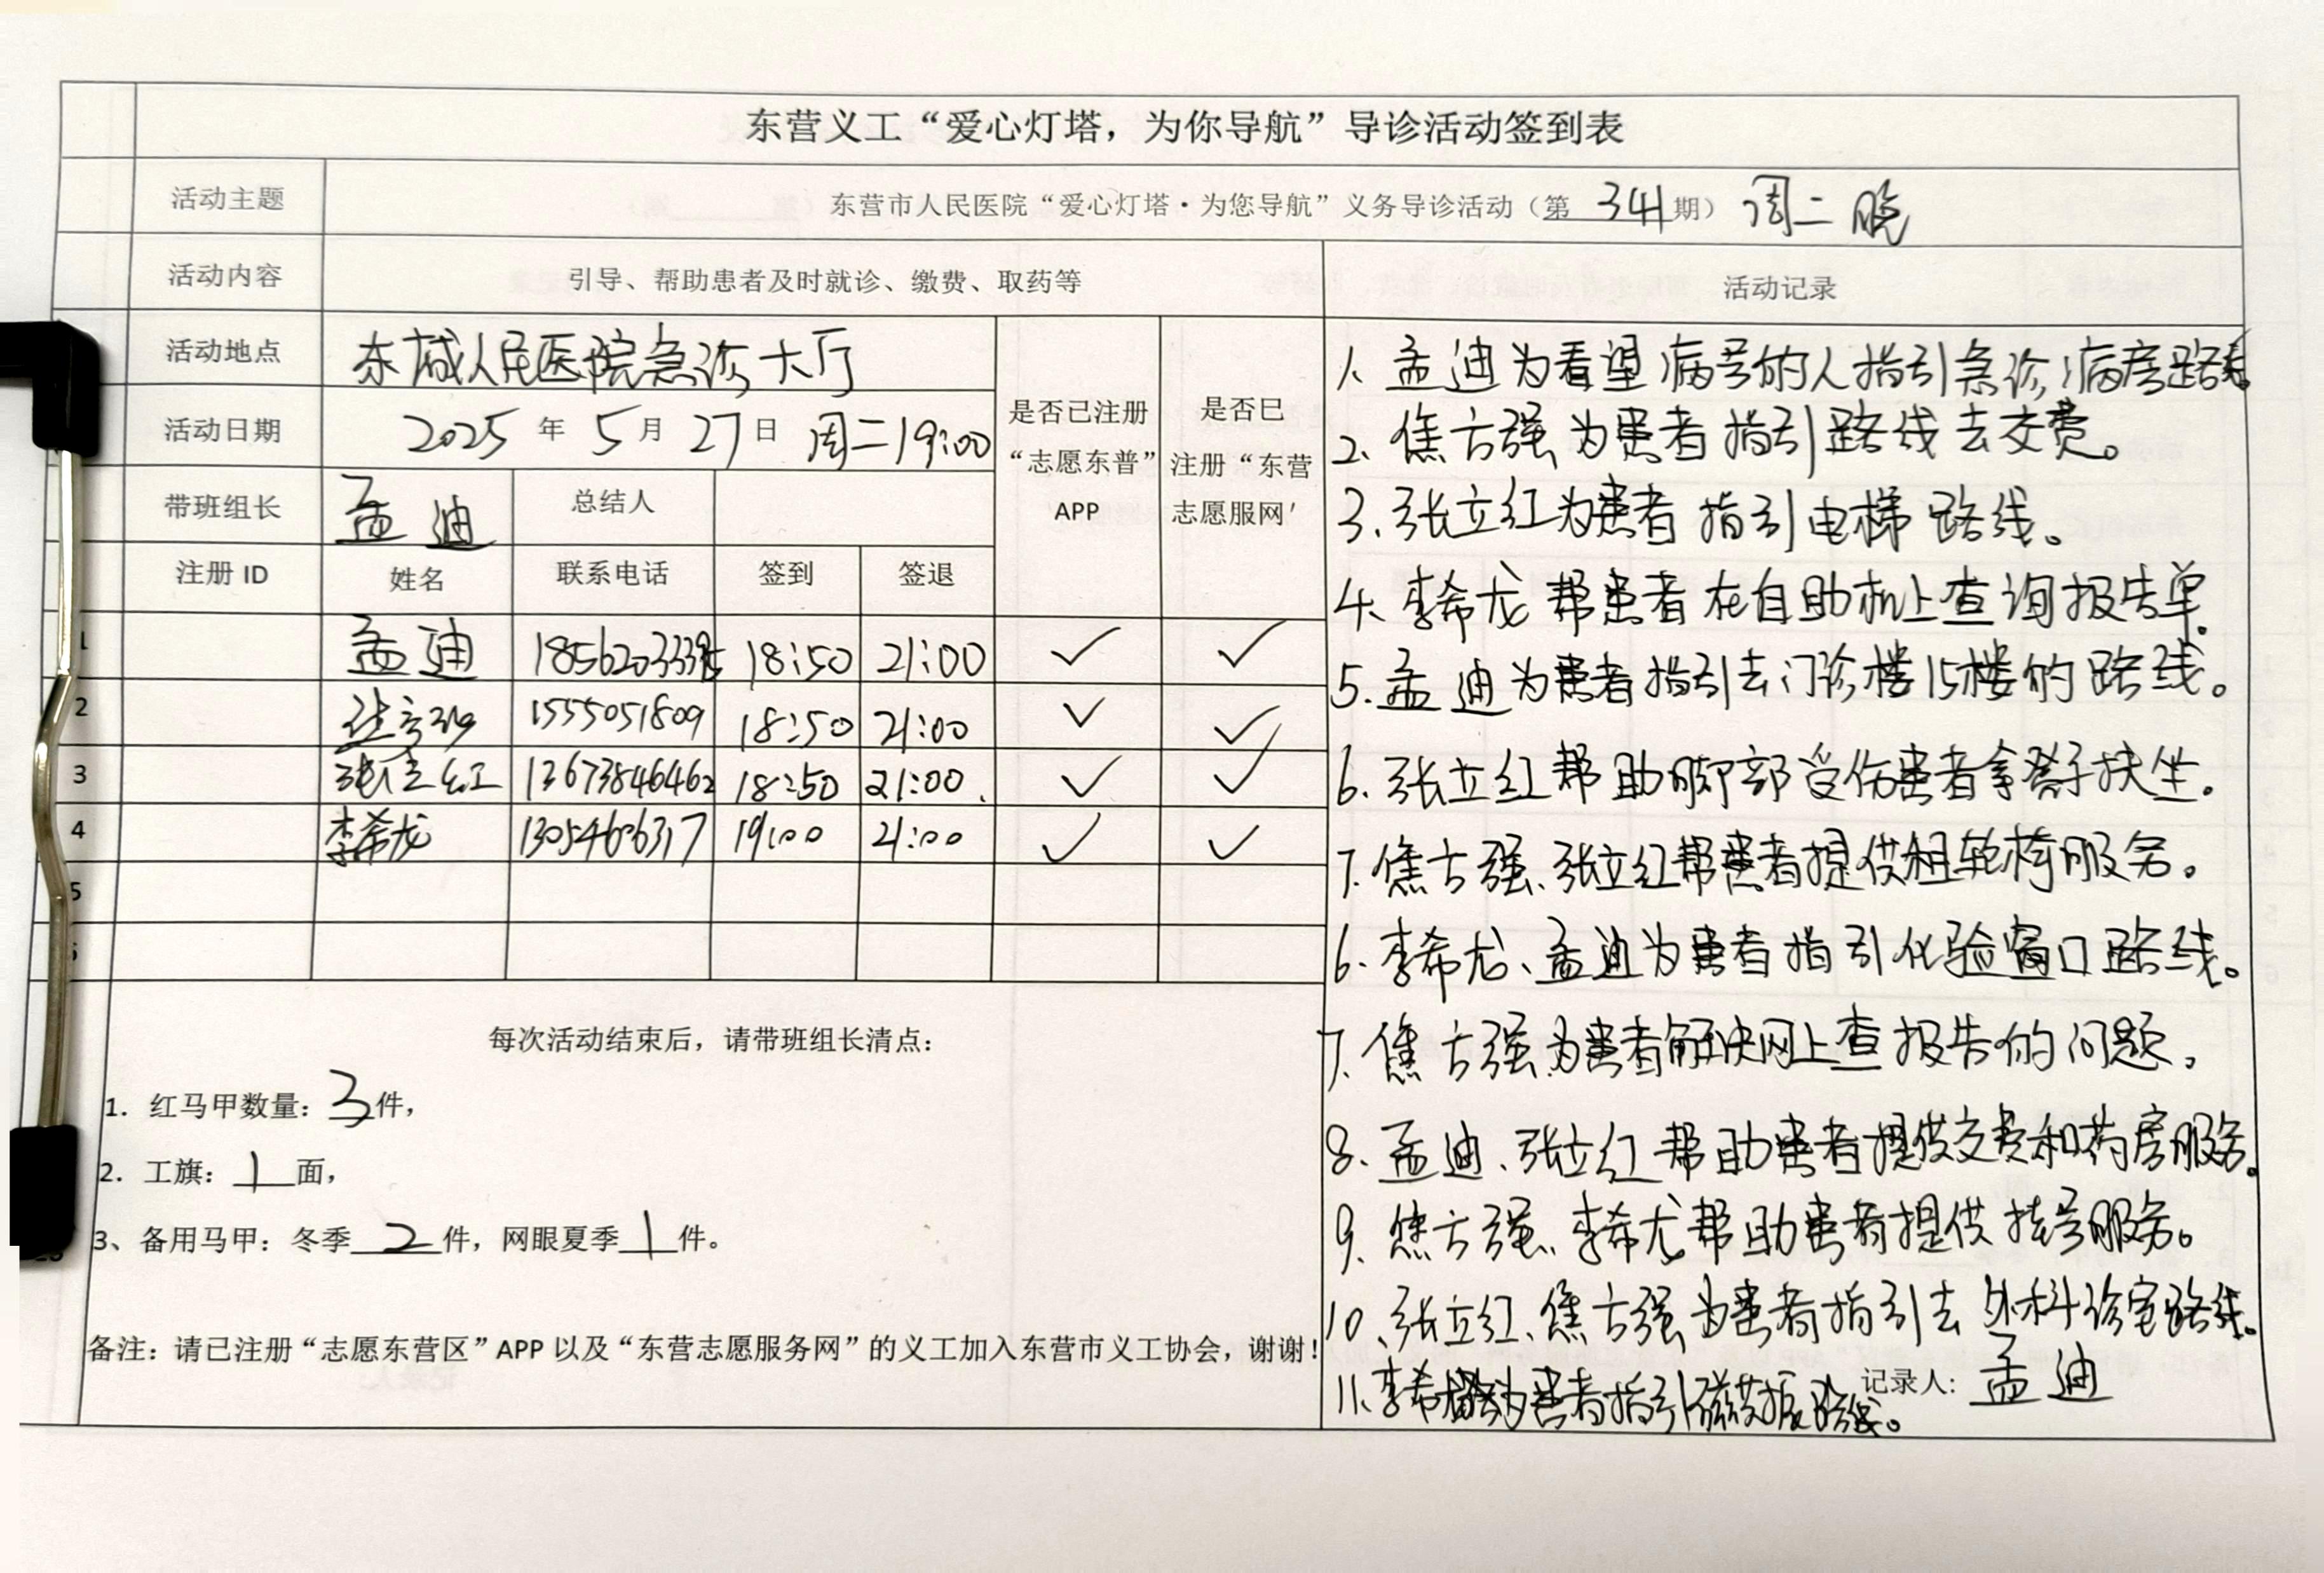 东营义工“爱心灯塔，为你导航”导诊活动签到表
活动主题 东营市人民医院“爱心灯塔·为您导航”义务导诊活动（第 341 期） 周二 晚
活动内容 引导、帮助患者及时就诊、缴费、取药等 活动记录
活动地点 东城人民医院急诊大厅
活动日期 2025 年 5 月 27 日 周二19:00
带班组长 孟迪 总结人
是否已注册“志愿东普”APP
是否已注册“东营志愿服网'
注册 ID 姓名 联系电话 签到 签退
1 孟迪 18:50 21:00 ✓ ✓
2 1555051809 18:50 21:00 ✓ ✓
3 张立红 13673846462 18:50 21:00. ✓ ✓
4 李希龙 13054606317 19:00 21:00 ✓ ✓
5
每次活动结束后，请带班组长清点：
1. 红马甲数量：3件，
2. 工旗：1面，
3、备用马甲：冬季 2 件，网眼夏季 1 件。
备注：请已注册“志愿东营区”APP 以及“东营志愿服务网”的义工加入东营市义工协会，谢谢！
1、孟迪为看望病号的人指引急诊病房路线。
2、焦方强为患者指引路线去交费。
3.张立红为患者指引电梯路线。
4、李希龙帮患者在自助机上查询报告单。
5.孟迪为患者指引去门诊楼15楼的路线。
6、张立红帮助脚部受伤患者拿凳子扶坐。
7.焦方强、张立红帮患者提供租轮椅服务。
6、李希龙、孟迪为患者指引化验窗口路线。
7、焦方强为患者解决网上查报告的问题。
8、孟迪、张立红帮助患者提供交费和药房服务。
9、焦方强、李希龙帮助患者提供挂号服务。
10、张立红、焦方强为患者指引去外科诊室路线。
11、李希 为患者指引磁共振路线。
记录人：孟迪